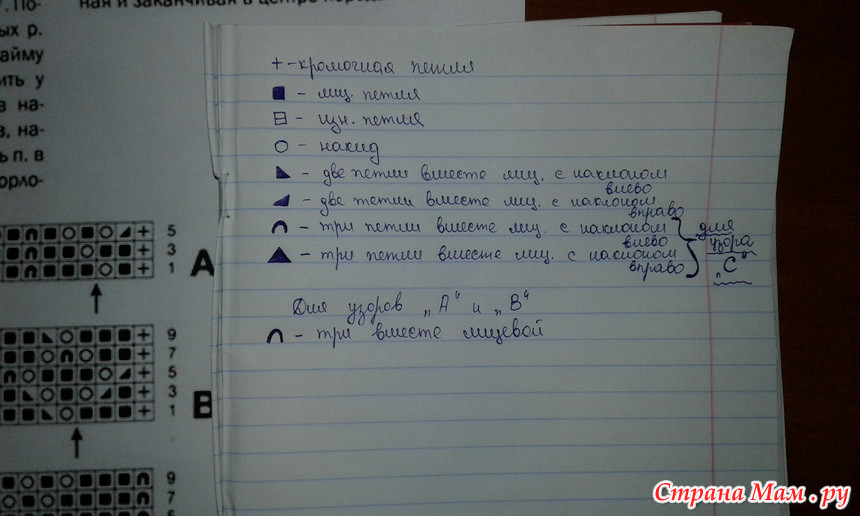 ная и заканчивая в центре
. По-
ых р.
айму
ить у
в на-
в, на-
ь п. в
орло-
+ - кромочная петля
■ - лиц. петля
⊟ - изн. петля
○ - накид
◣ - две петли вместе лиц. с наклоном
влево
◢ - две петли вместе лиц. с наклоном
вправо
∩ - три петли вместе лиц. с наклоном
влево
▲ - три петли вместе лиц. с наклоном
вправо
для
узора
„С"
Для узоров „А" и „В"
∩ - три вместе лицевой
5
3
1
A
9
7
5
3
1
B
9
7
Страна Мам.ру